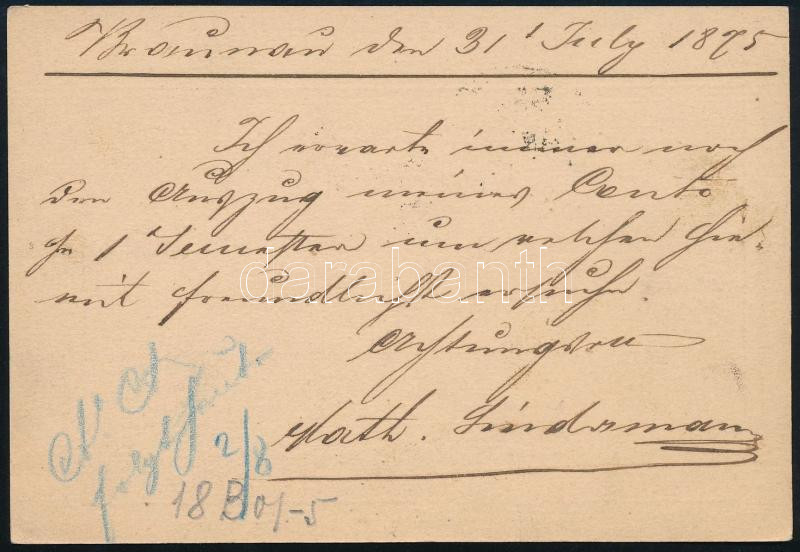 Braunau den 31t July 1875
Ich erwarte immer noch
den Auszug meines Conto
pr 1 Semester um welchen hie-
mit freundlichst ersuche.
Achtungsvoll
Math. Lindsman
darabanth
folgt heute
2/8
18 B 01-5